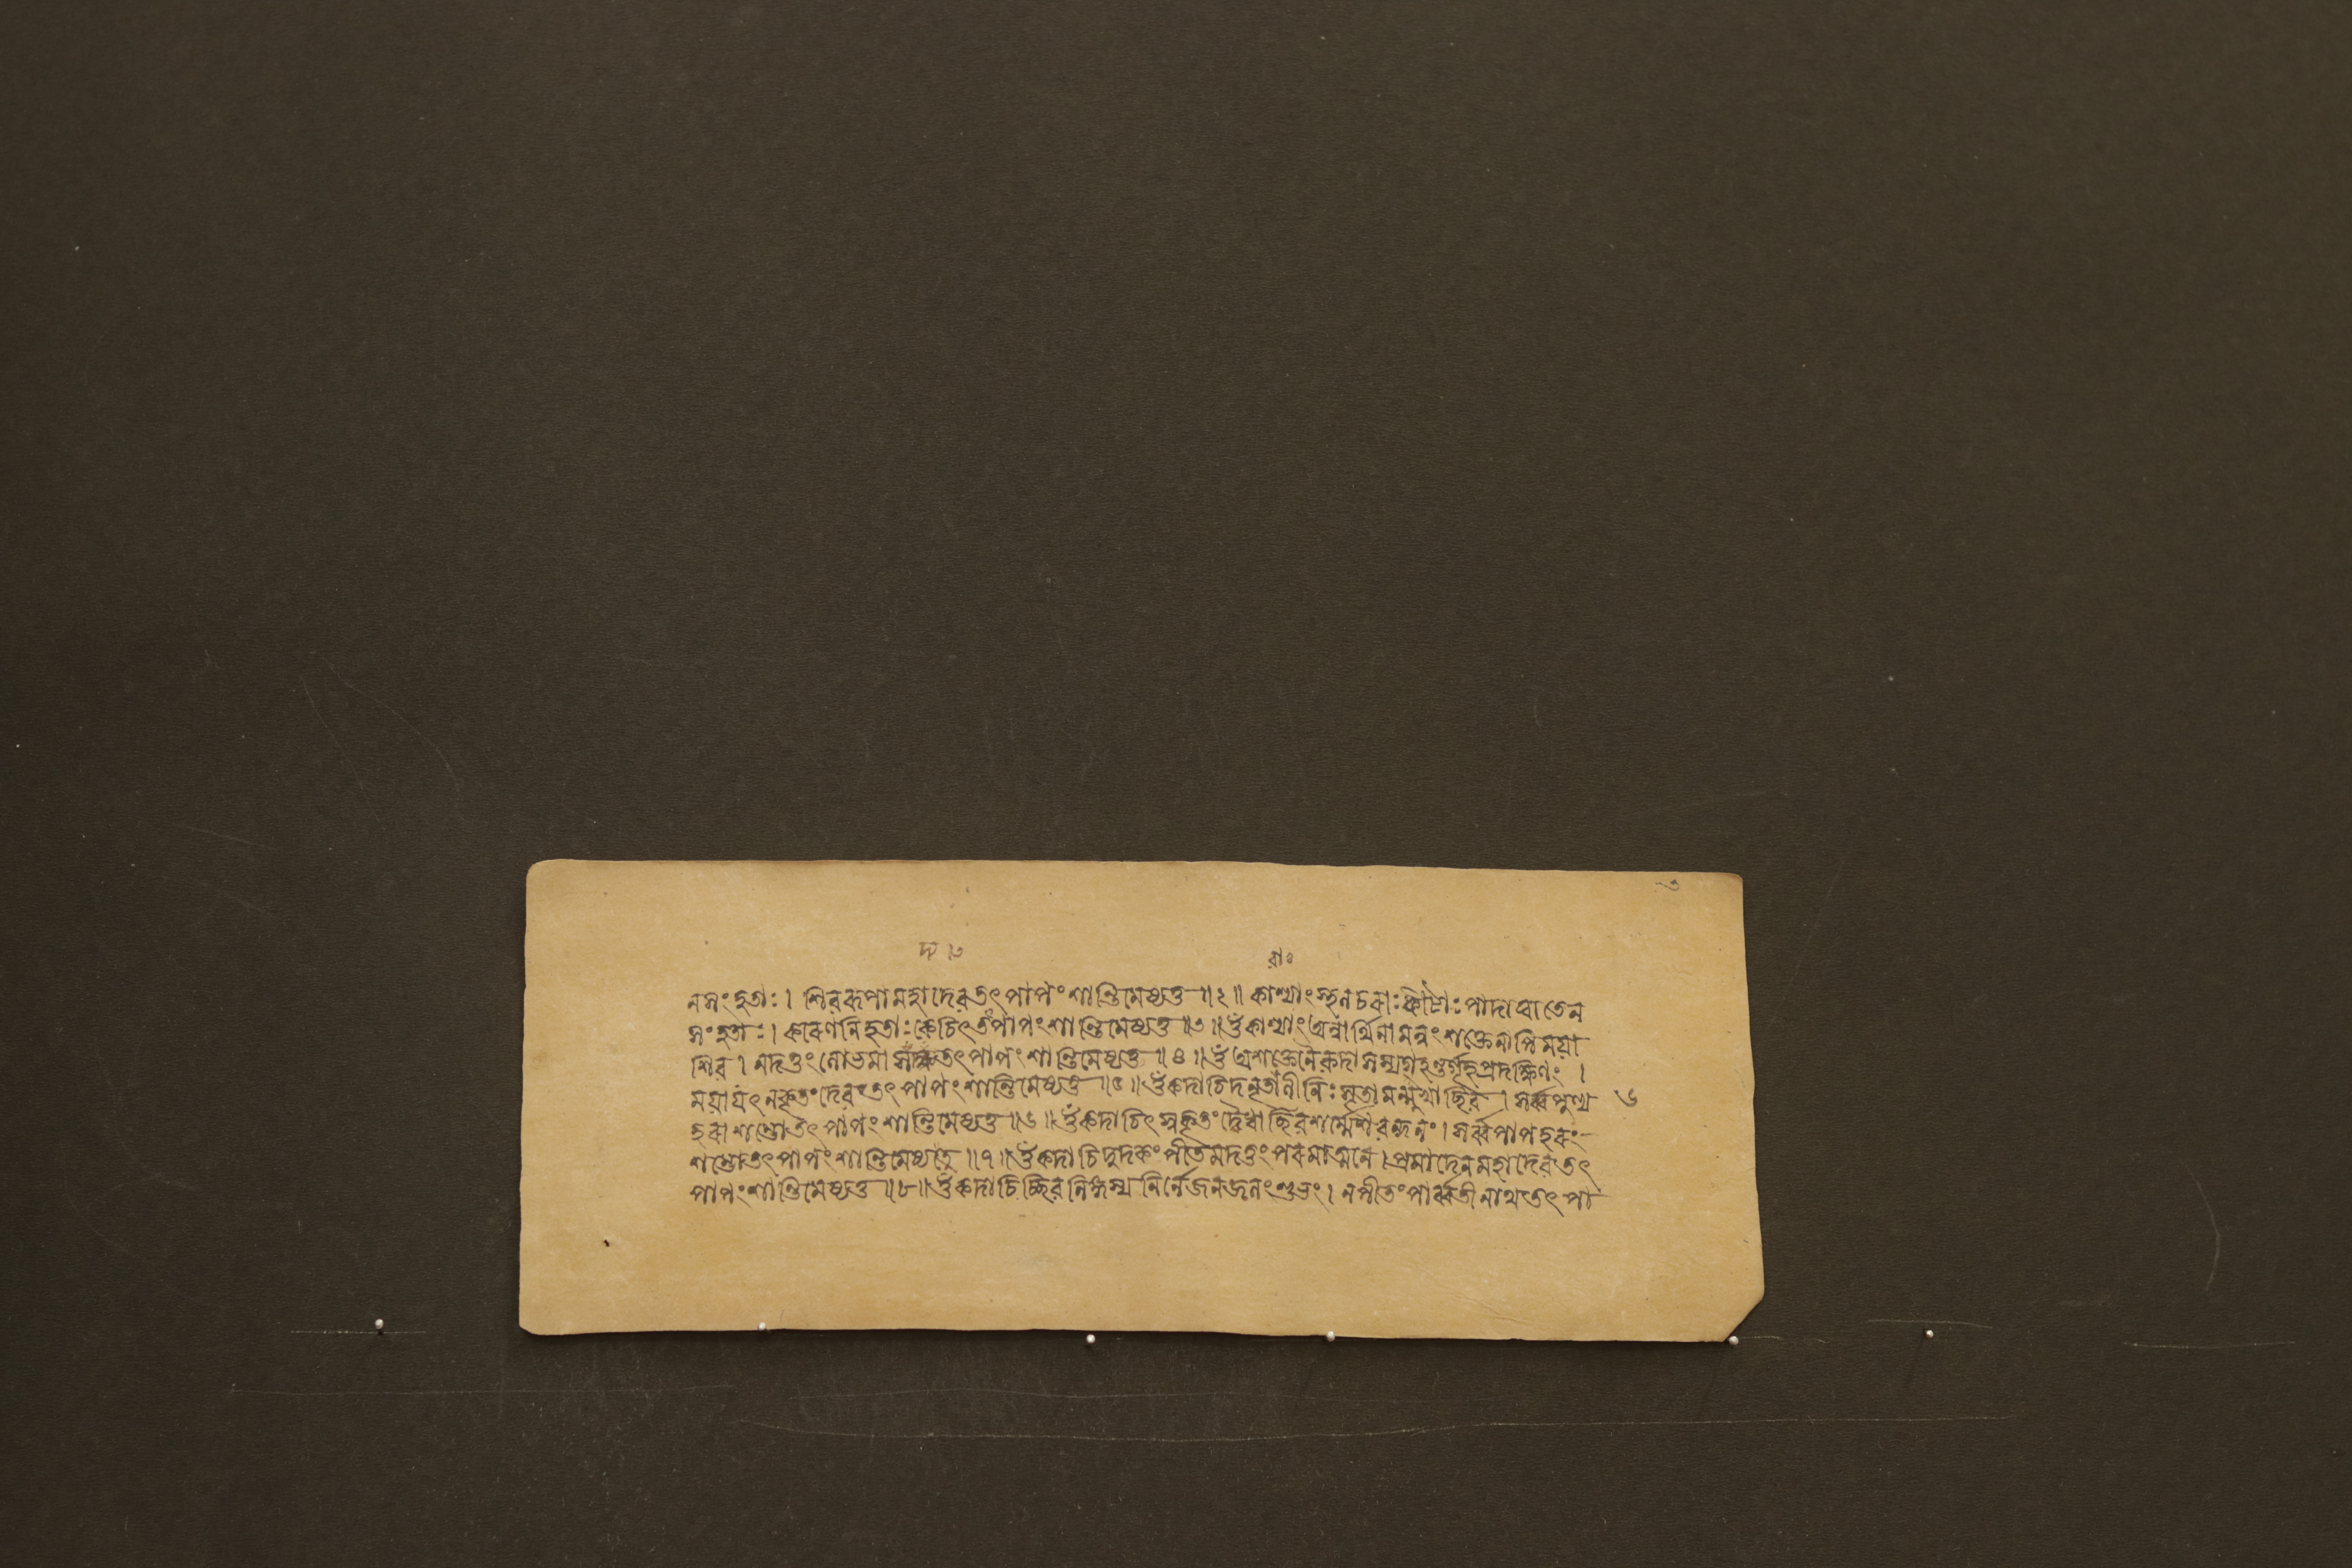 ৩
দ ৩ রাঃ
নসংহৃতাঃ। শিবরূপামহাদেবতৎপাপংশান্তিমেষ্যতু॥২॥ কাশ্যাংস্থলচরাঃকীটাঃপাদাঘাতেন
সংহৃতাঃ। কারণনিহৃতাঃকেচিৎতৎপাপংশান্তিমেষ্যতু॥৩॥ওঁকাশ্যাংঅন্নার্থিনামন্নংশক্তেনাপিময়া
শিব। নদত্তংলোভমা তৎপাপংশান্তিমেষ্যতু॥৪॥ওঁঅশক্তেনৈকদাসম্য প্রদক্ষিণং।
ময়াযৎনকৃতংদেবতৎপাপংশান্তিমেষ্যতু॥৫॥ওঁকদাচিদনৃতাবাণীনিঃসৃতামন্মুখাচ্ছিব। সর্ব্বপুণ্য ৬
হরাশম্ভোতৎপাপংশান্তিমেষ্যতু॥৬॥ওঁকদাচিৎসকৃতং শর্ম্মেশবন্দনং। সর্ব্বপাপহরং
শম্ভোতৎপাপংশান্তিমেষ্যতু॥৭॥ওঁকদাচিদুদকংপীতমদত্তংপরমাত্মনে। প্রমাদেনমহাদেবতৎ
পাপংশান্তিমেষ্যতু॥৮॥ওঁকদাচিচ্ছিবলিঙ্গস্য নির্নেজনজলংশুভং। নপীতংপার্ব্বতীনাথতৎপা